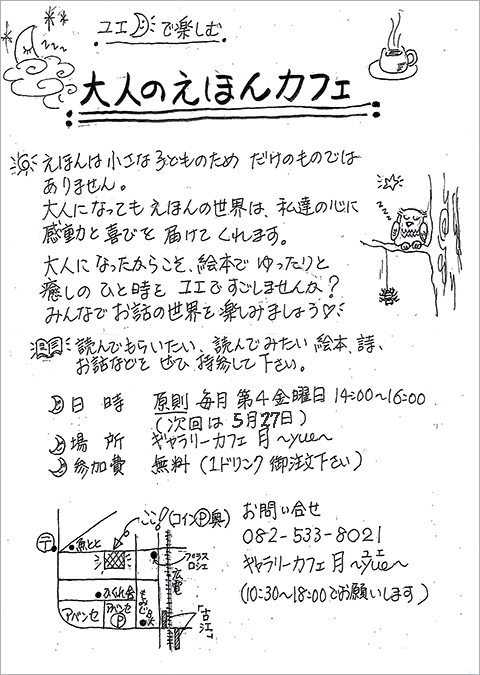 ユエ で楽しむ
大人のえほんカフェ
えほんは小さな子どものため だけのものでは
ありません。
大人になっても えほんの世界は、私達の心に
感動と喜びを 届けて くれます。
大人に なったからこそ、絵本で ゆったりと
癒しの ひと時を ユエで すごしませんか?
みんなで お話の世界を 楽しみましょう♡
読んでもらいたい、読んでみたい 絵本、詩、
お話などを ぜひ 持参して下さい。
日 時 原則 毎月 第4金曜日 14:00~16:00
(次回は 5月27日)
場 所 ギャラリーカフェ 月 ~yue~
参加費 無料 (1ドリンク 御注文下さい)
ここ! (コインⓅ奥)
〒
魚とと
プラス
ロシェ
広電
アバンセ
アバンセ
Ⓟ
「古江」
お問い合せ
082-533-8021
ユエ
ギャラリーカフェ 月 ~yue~
(10:30~18:00でお願いします)